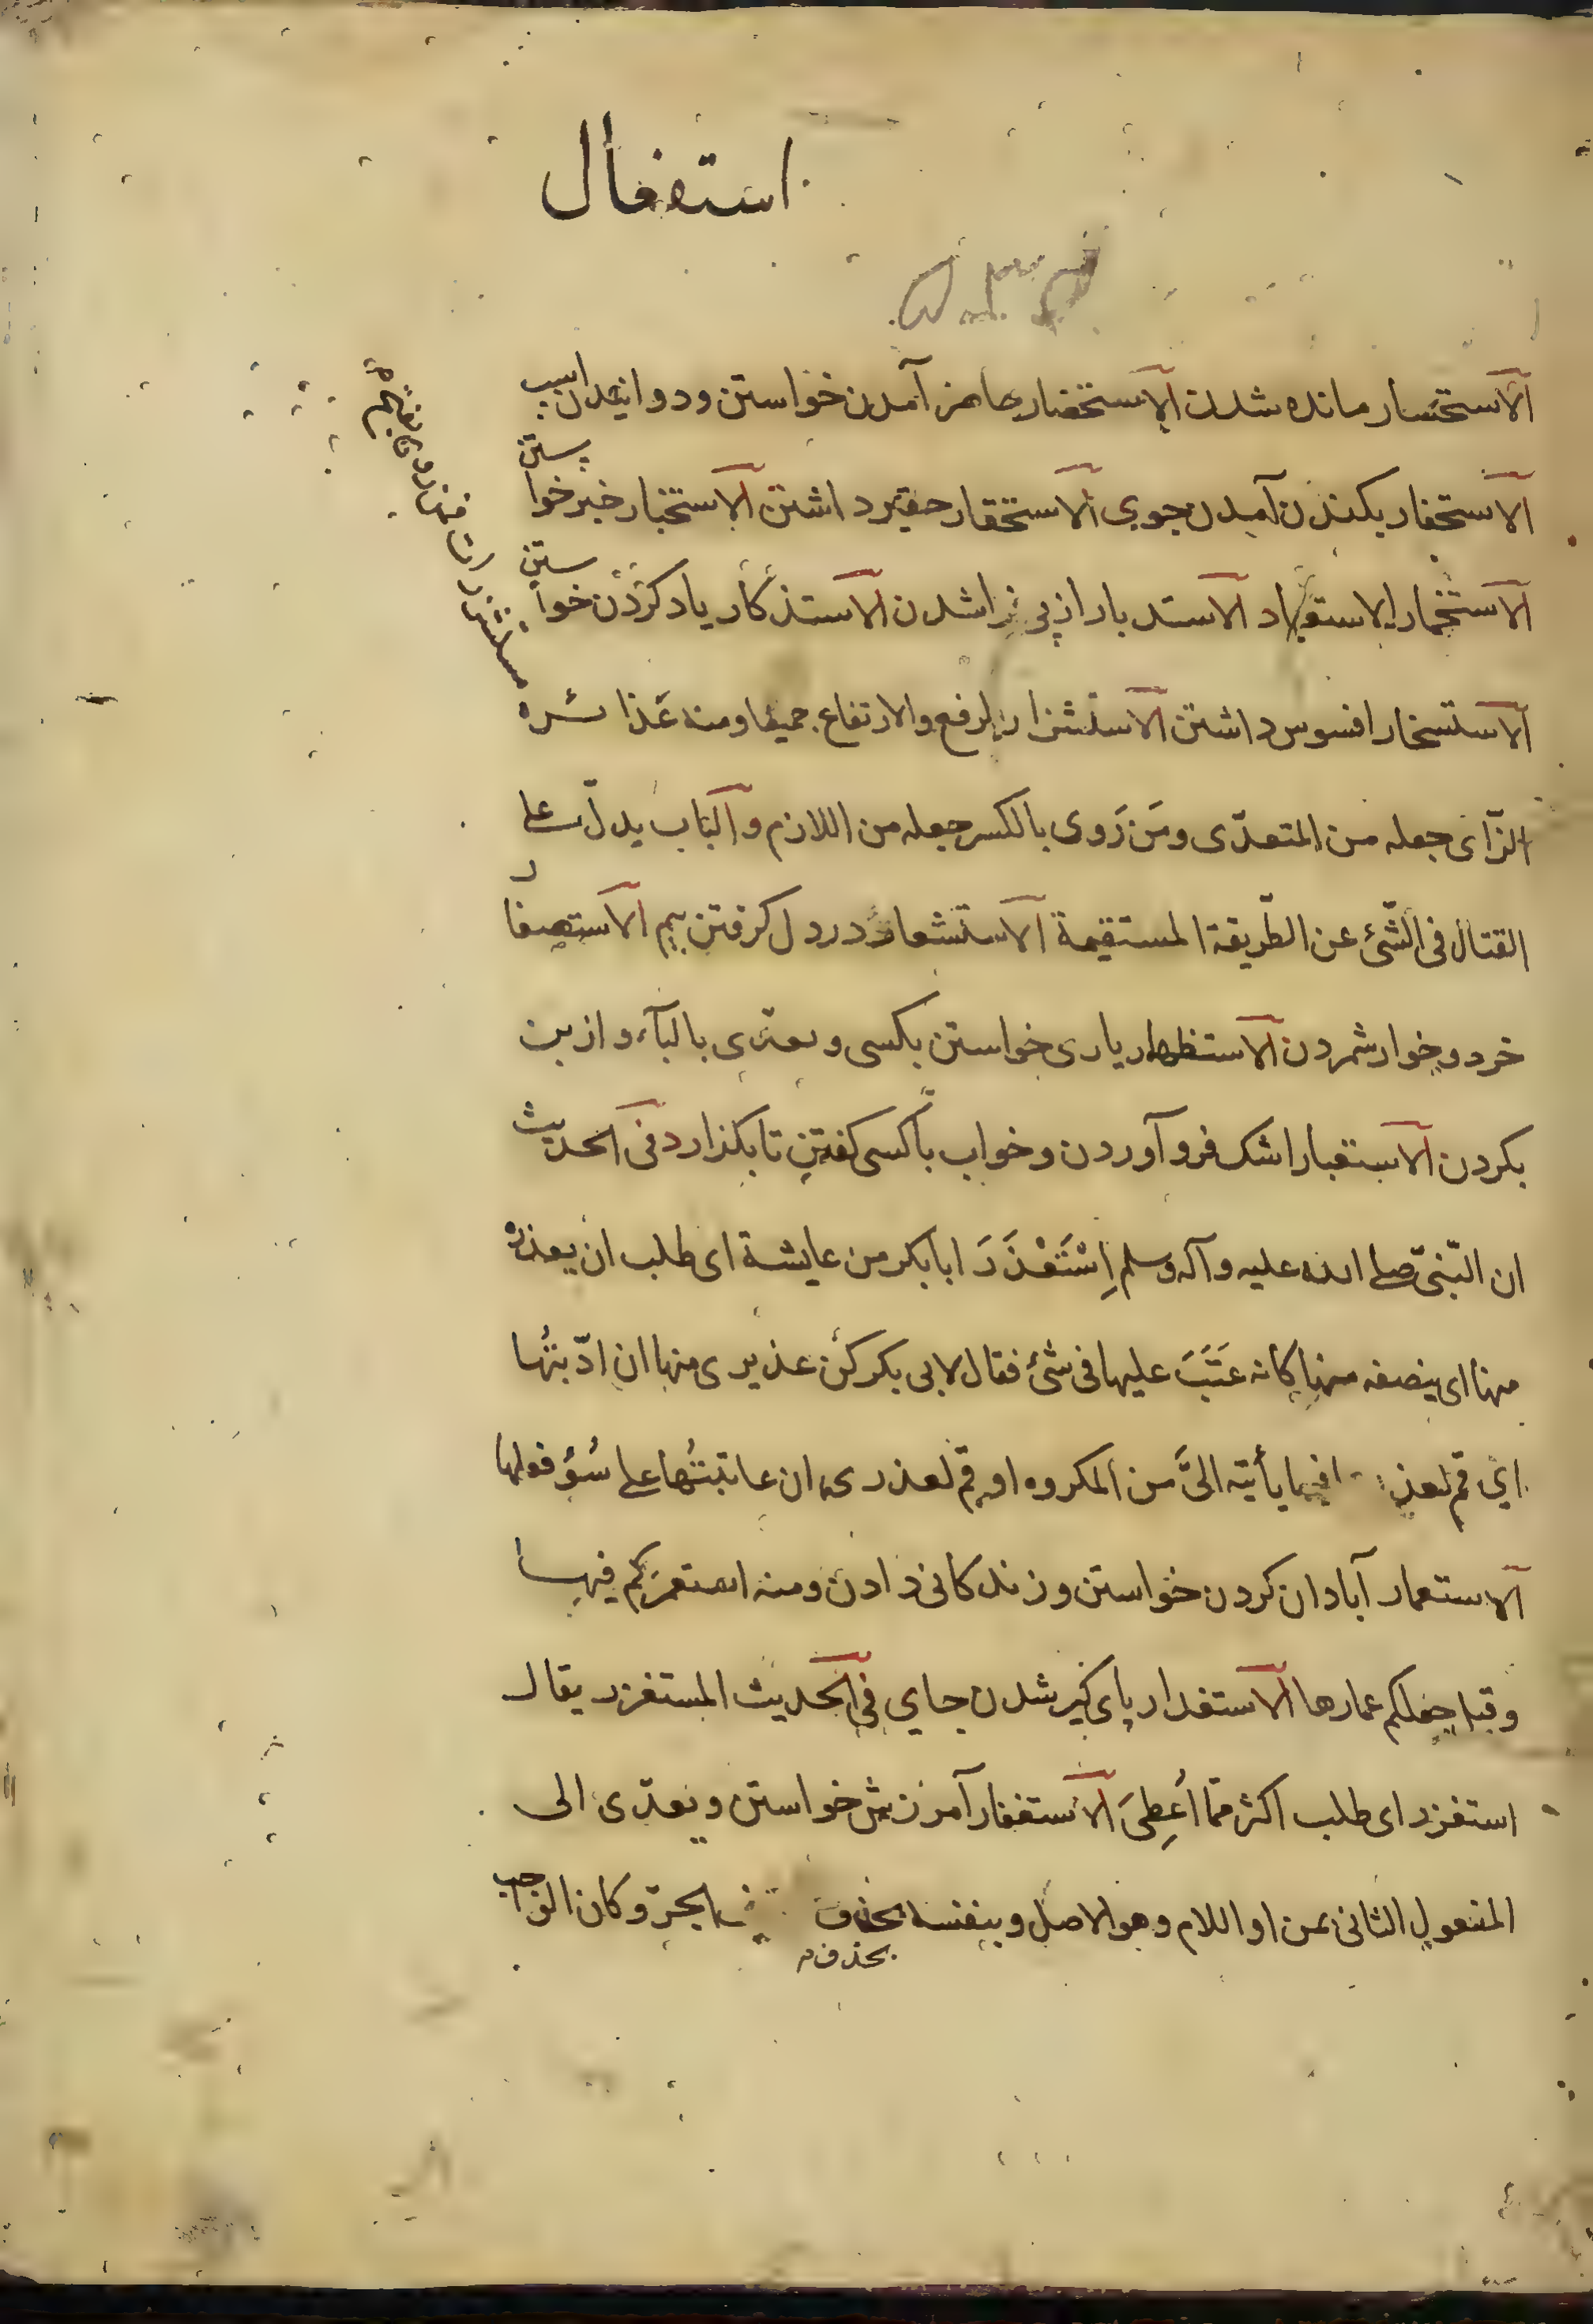 استفعال
الاستحسار مانده شدن الاستحضار حاضر آمدن خواستن ودوانیدن اسب
الاستحفار بکندن آمدن جوی الاستحقار حقیر داشتن الاستخبار خبر خوا
ستن
الاستخمار الاستعباد الاستدبار از پی فرا شدن الاستذکار یاد کردن خوا
ستن
الاستسخار افسوس داشتن الاستشزار الرفع والارتفاع جمیعا ومنه غدائره
مستشزرات فمن روی بفتح
الزّای جعله من المتعدّی ومَن رَوی بالکسر جعله من اللازم والباب یدلّ علی
القتال فی الشّئ عن الطّریقة المستقیمة الاستشعار در دل کرفتن بیم الاستصغار
خرد و خوار شمردن الاستظهار یاری خواستن بکسی ویعدّی بالبآء واز بن
بکردن الاستعبار اشک فرو آوردن وخواب باکسی کفتن تا بکذارد فی الحدیث
ان النّبیّ صلی الله علیه وآله وسلم اِسْتَعْذَرَ ابابکر من عایشة ای طلب ان یعذره
منها ای ینصفه منها کانه عَتَبَ علیها فی شئ فقال لابی بکر کُن عذیری منها ان ادّبتُها
ای قم بعذ فیما یأتیه الیَّ من المکروه او قم بعذری ان عاتبتُها علی سُوُء فعلها
الاستعمار آبادان کردن خواستن وزندکانی دادن ومنه استعمرکم فیها
وقیل جعلکم عمارها الاستغدار پای کیر شدن جای فی الحدیث المستغزر یقال
استغزر ای طلب اکثر ممّا اُعطِیَ الاستغفار آمرزش خواستن ویعدّی الی
المفعول الثانی بمن او اللام وهو الاصل وبنفسه بحذف الجرّ وکان الواجب
بحذف